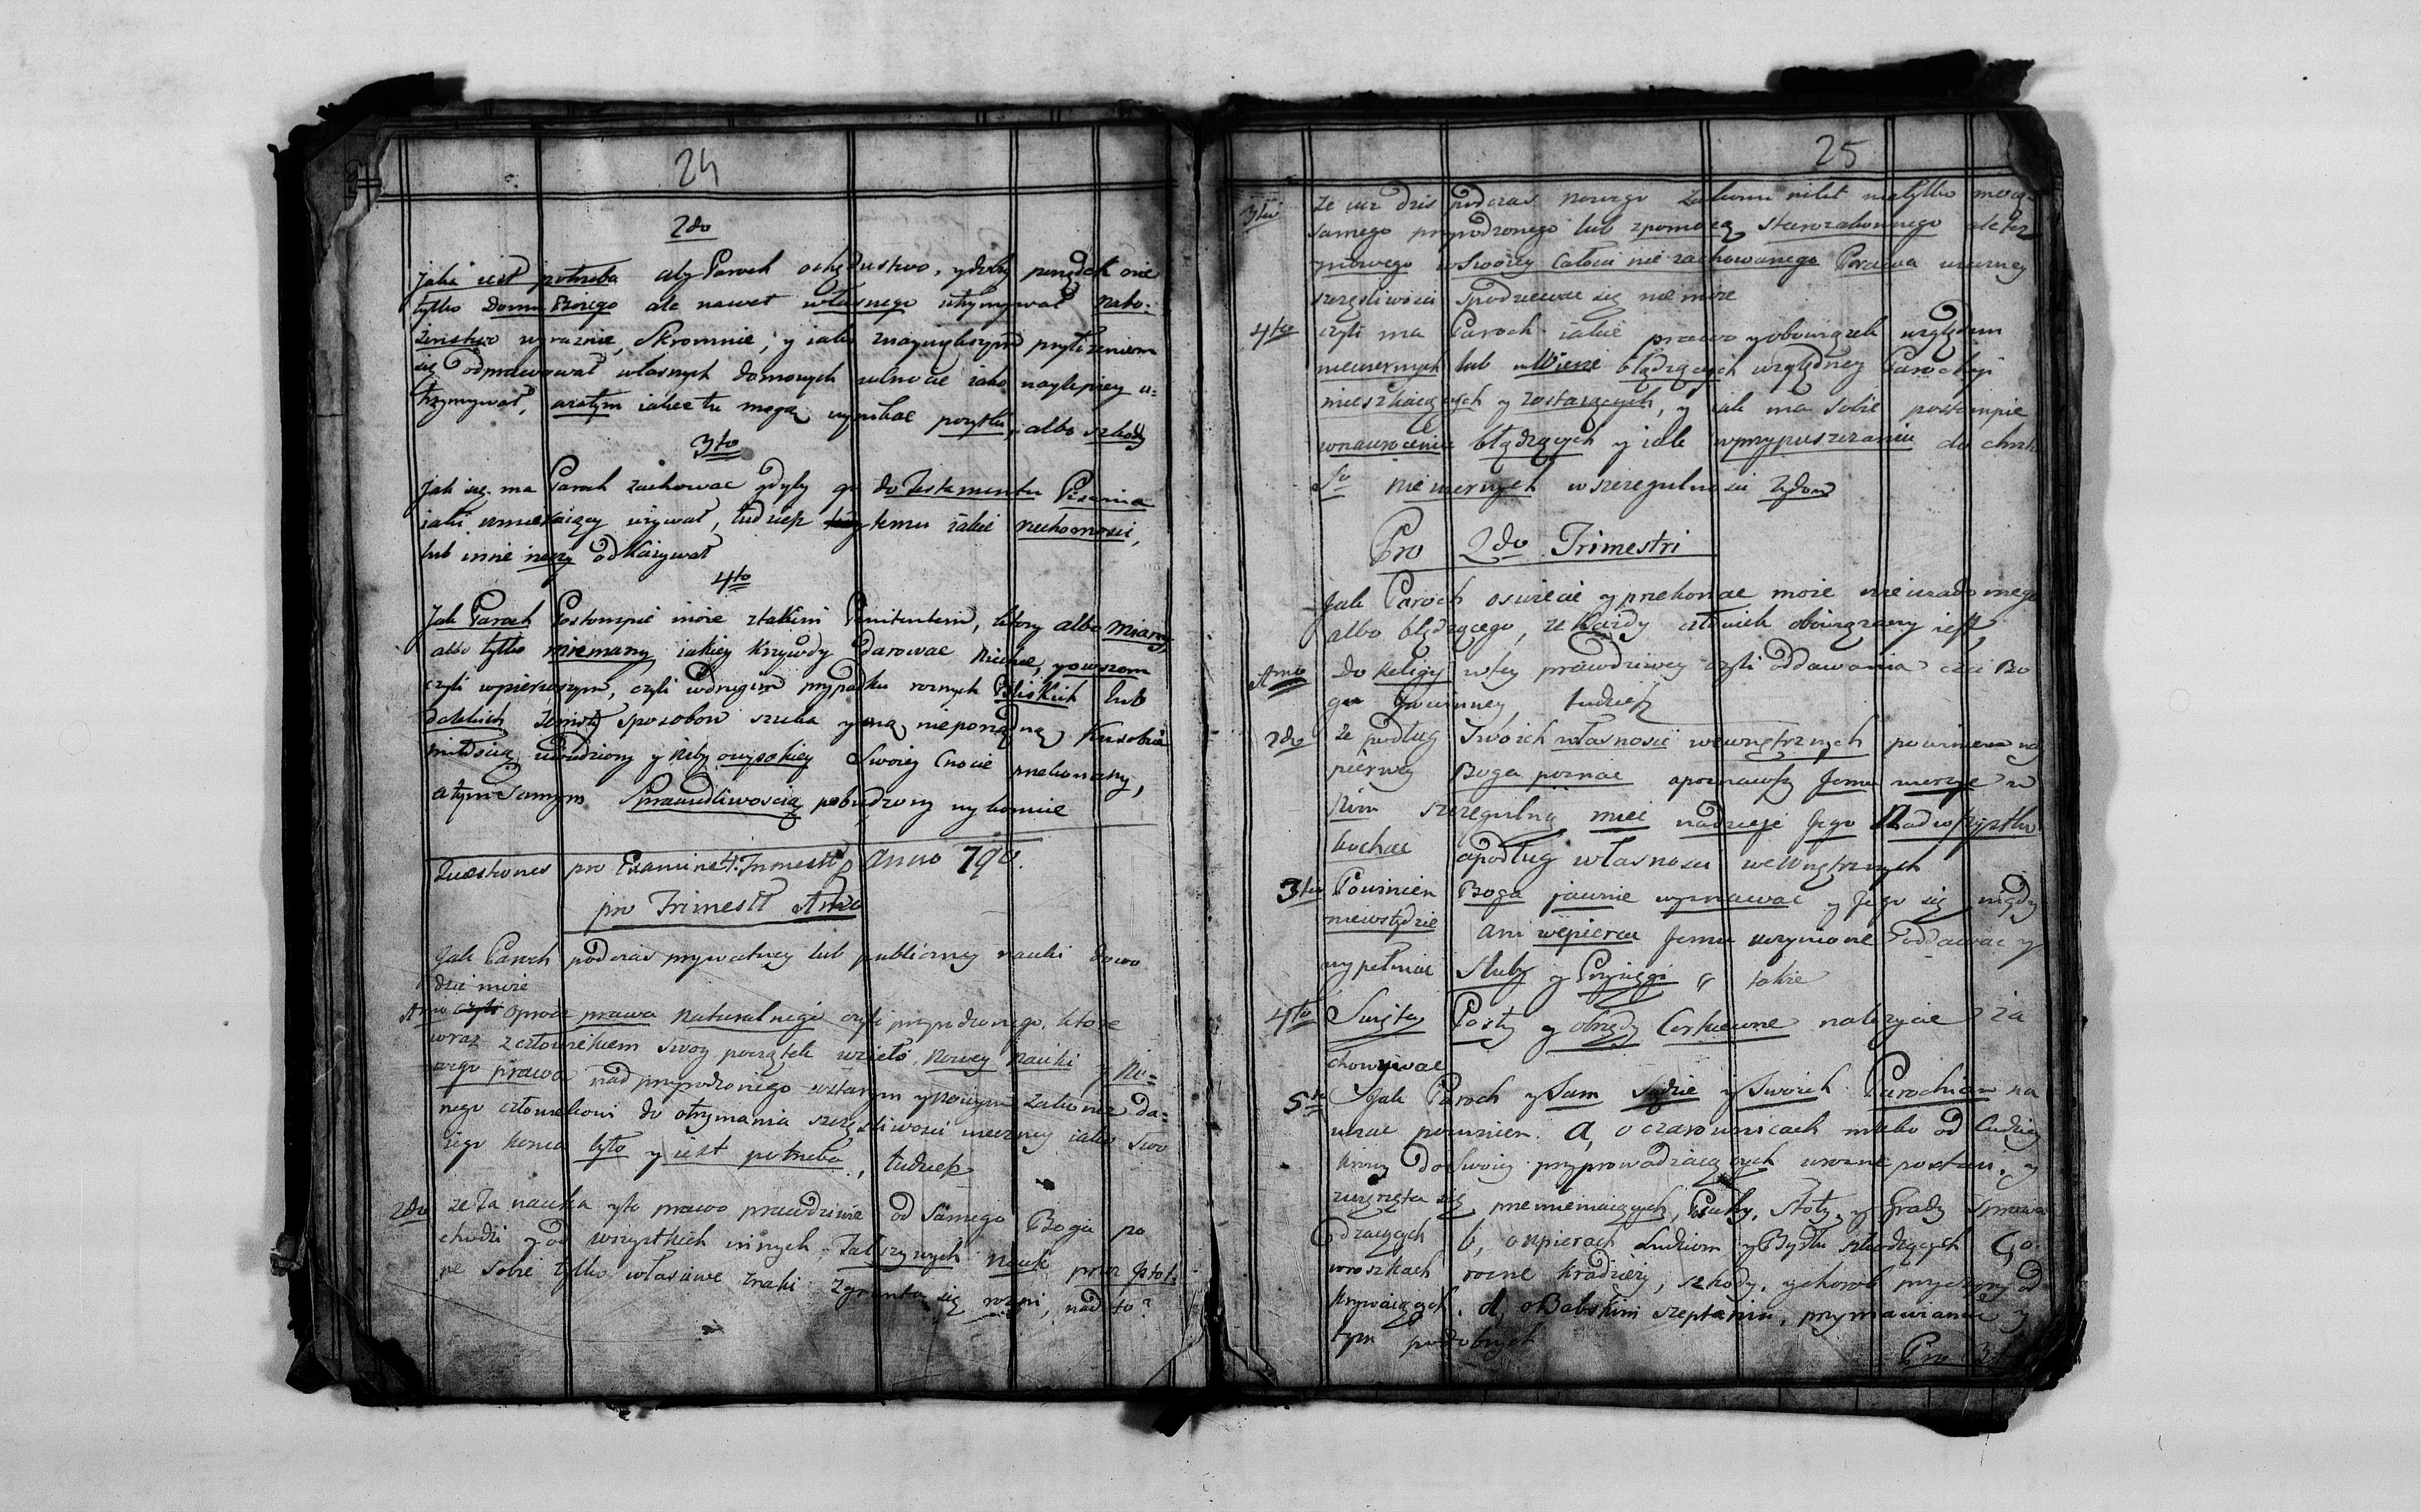 24
2do
Jaka iest potrzeba aby Paroch ochędustwo, y dobry porządek nie
tylko Domu Bożego ale nawet własnego utrzymywał nabo-
żenstwo wyraznie, Skromnie, y iako z naywyższym przytrzeniem
się odprawował własnych domowych w cnocie iako naylepiey u-
trzymywał, a z tąd iakie tu mogą wynikac pożytki, albo szkody
3tio
Jak się ma Paroch zachowac gdyby go do Testamentu Pisania
iaki umieraiący wzywał, tudzież temu iakie ruchomosci,
lub inne rzeczy odkazywał
4to
Jak Paroch Postompić może z takim Penitentem, ktory albo miany
albo tylko mniemany iakiey krzywdy darowac niechce, y owszem
czyli w pierwszym, czyli w drugim przypadku roznych Bliskich lub
dalekich zemsty sposobow szuka y mą nieporządną ku sobie
miłoscią uwiedziony y niby o wysokiey Swoiey Cnocie przekonany,
a tym samym Sprawiedliwoscią pobudzony wykonuie
Quaestiones pro Examine 4. Trimestr anno 790.
pro Trimestr Imo
Jak Paroch podczas prywatney lub publiczney nauki dowo
dzic może
Imo oprocz prawa naturalnego czyli przyrodzonego, ktore
wraz z człowiekiem swoy początek wzieło, nowey nauki y no-
wego prawa nad przyrodzonego w starym y nowym zakonie da-
nego człowiekowi do otrzymania szczęśliwosci wieczney iako swo
iego konca było y iest potrzeba, tudzież
2do że ta nauka y to prawo prawdziwie od Samego Boga po
chodzi y od wszystkich innych fałszywych nauk przez istot-
ne sobie tylko własciwe znaki z gruntu się rozni, nad to?
25
3tio że iuz dzis podczas nowego zakonu nikt nie tylko mocą
samego przyrodzonego lub z pomocą starozakonnego ale też
nowego w Swoiey całosci nie zachowanego Prawa wieczney
szczęsliwosci Spodziewac się nie może
4to czyli ma Paroch iakie prawo y obowiązek względem
niewiernych lub w Wierze błądzących względney Parochyi
mieszkaiących y zostaiących, y iak ma sobie postompić
w nawroceniu błądzących y iak w przypuszczaniu do chrztu
So niewiernych w szczegulnosci Zydow
Pro 2do Trimestri
Jak Paroch oswiecic y przekonac może niewiadomego
albo błądzącego, że każdy człowiek obowiązany iest,
Imo do Religij w tey prawdziwey czyli oddawania czci Bo
gu powinney, tudzież
2do że podług Swoich własnosci wewnętrznych powinien nay
pierwey Boga poznac a poznawszy Jemu wierzyc w
Nim szczegulną miec nadzieję Jego Nadewszystko
kochac a podług własnosci zewnętrznych
3tio Powinien Boga jawnie wyznawac y Jego się nigdy
niewstydzic ani wepierac Jemu uczynione oddawac y
wypełniac sluby y Przysięgi a także
4to Swięta Posty y obrzędy Cerkiewne należycie za
chowywac
5to Jak Paroch y Sam sądzic y Swoich Parochian na
uczac powinien. a, o czarownicach mleko od Cudzey
krowy do Swoiey przyprowadzaiących w rozne postaci, y
zwierzęta się przemieniaiących, Pioruny, sloty, y Grady Sprowa
dzaiących b, o upierach Ludziom y Bydłu szkodzących C, o
wroszkach rozne kradzieży, szkody, y chorob przyczyny od
krywaiących. d, o Babskim szeptaniu, przymawianiu y
tym podobnych
Pro 3t